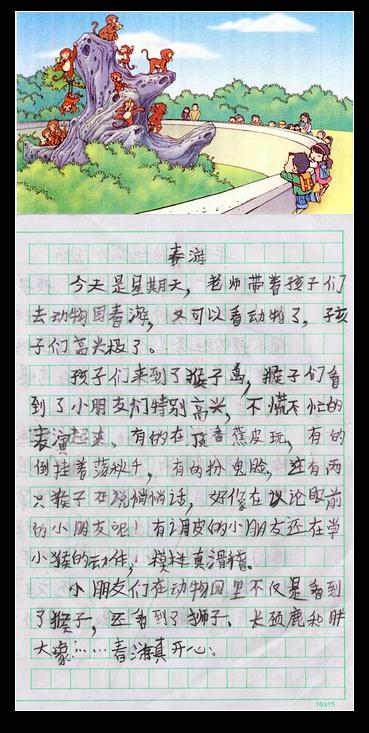 春游
今天是星期天，老师带着孩子们
去动物园春游，又可以看动物了，孩
子们高兴极了。
孩子们来到了猴子岛，猴子们看
到了小朋友们特别高兴，不慌不忙的
表演起来。有的在顶香蕉皮玩，有的
倒挂着荡秋千，有的扮鬼脸，还有两
只猴子在说悄悄话，好像在议论眼前
的小朋友呢！有调皮的小朋友还在学
小猴的动作，模样真滑稽。
小朋友们在动物园里不仅是看到
了猴子，还看到了狮子、长颈鹿和胖
大象……春游真开心。
16×15